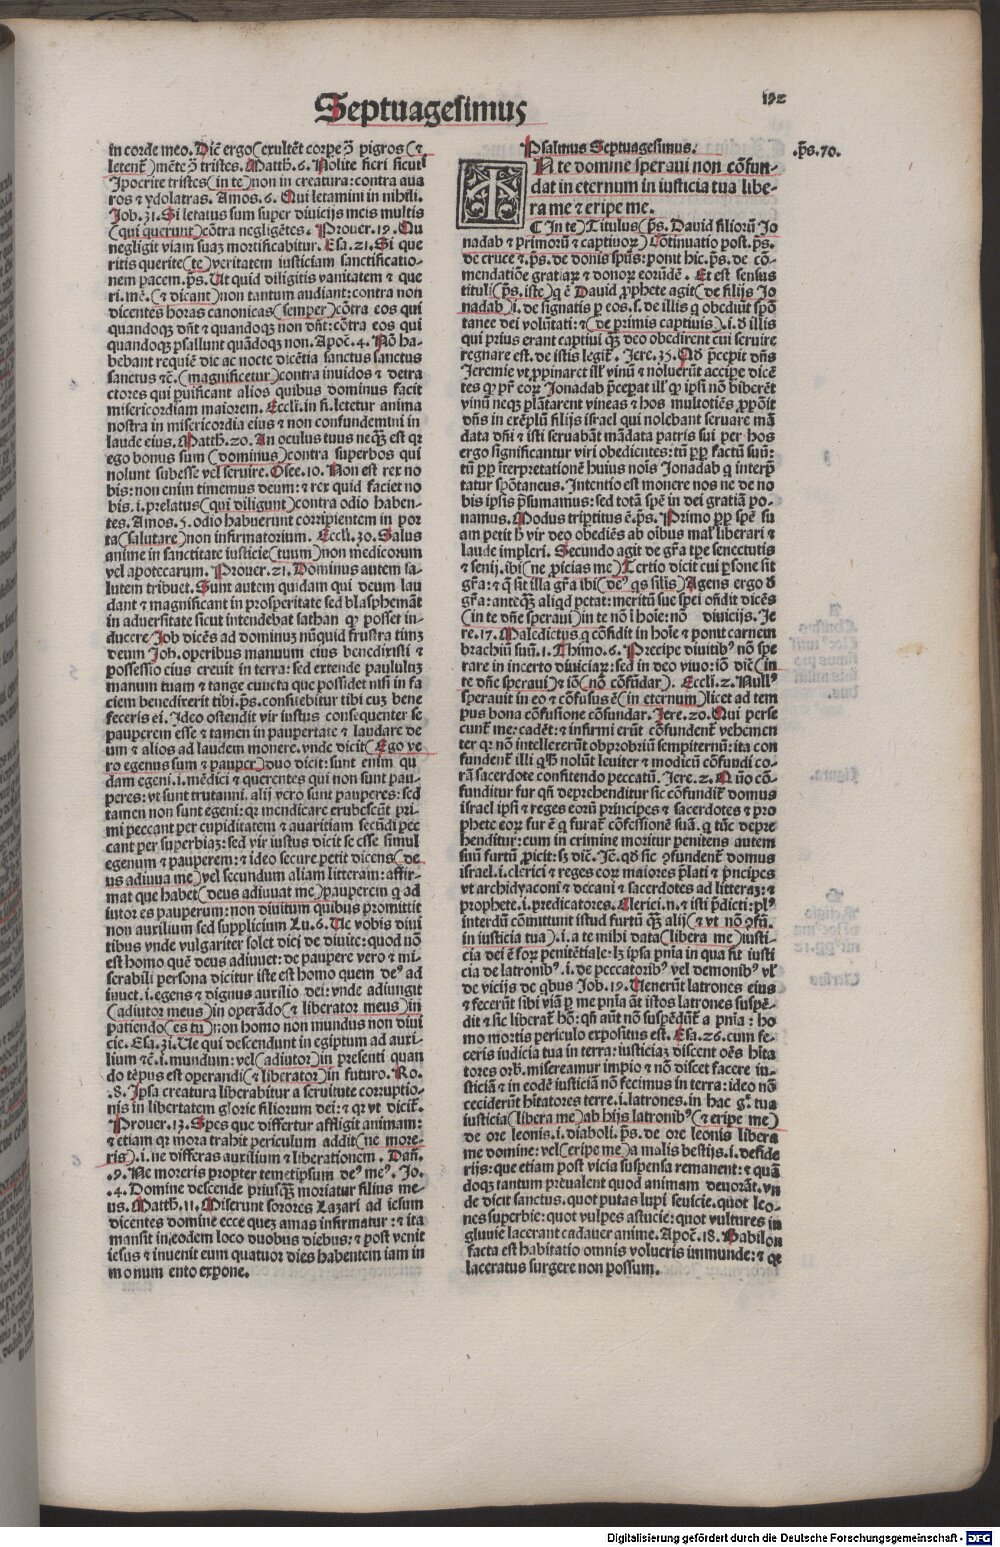 Septuagesimus
132
in corde meo. Dic̄ ergo (exultēt corpe ꝯ̄ pigros (⁊
letenť) mēte ꝯ̄ tristes. Matth. 6. Nolite fieri sicut
Ipocrite tristes (in te) non in creatura: contra aua
ros ⁊ ydolatras. Amos. 6. Qui letamini in nihili.
Job. 31. Si letatus sum super diuicijs meis multis
(qui querunt) cōtra negligētes. Prouer. 19. Qu
negligit viam suaꝫ mortificabitur. Esa. 21. Si que
ritis querite (te) veritatem iusticiam sanctificatio-
nem pacem. p̄s. Ut quid diligitis vanitatem ⁊ que
ri. mē. (⁊ dicant) non tantum audiant: contra non
dicentes horas canonicas (semper) cōtra eos qui
quandoqꝫ dn̄t ⁊ quandoqꝫ non dn̄t: cōtra eos qui
quandoqꝫ psallunt quādoqꝫ non. Apoc̄. 4. Nō ha-
bebant requiē die ac nocte dicētia sanctus sanctus
sanctus ⁊c̄. (magnificetur) contra inuidos ⁊ detra
ctores qui puificant alios quibus dominus facit
misericordiam maiorem. Eccli. in fi. letetur anima
nostra in misericordia eius ⁊ non confundemini in
laude eius. Matth. 20. An oculus tuus neqꝫ est qꝛ
ego bonus sum (dominus) contra superbos qui
nolunt subesse vel seruire. Osee. 10. Non est rex no
bis: non enim timemus deum: ⁊ rex quid faciet no
bis. i. prelatus (qui diligunt) contra odio haben-
tes. Amos. 5. odio habuerunt corripientem in por
ta (salutare) non infirmatorium. Eccli. 30. Salus
anime in sanctitate iusticie (tuum) non medicorum
vel apotecarum. Prouer. 21. Dominus autem sa-
lutem tribuet. Sunt autem quidam qui deum lau
dant ⁊ magnificant in prosperitate sed blasphemāt
in aduersitate sicut intendebat sathan qꝫ posset in-
ducere Job dicēs ad dominuꝫ nūquid frustra timꝫ
deum Job. operibus manuum eius benedixisti ⁊
possessio eius creuit in terra: sed extende paululuꝫ
manum tuam ⁊ tange cuncta que possidet nisi in fa
ciem benedixerit tibi. p̄s. confitebitur tibi cuꝫ bene
feceris ei. Ideo ostendit vir iustus consequenter se
pauperem esse ⁊ tamen in paupertate ⁊ laudare de
um ⁊ alios ad laudem monere. vnde dicit (Ego ve
ro egenus sum ⁊ pauper) duo dicit: sunt enim qu
dam egeni. i. mēdici ⁊ querentes qui non sunt pau-
peres: vt sunt trutanni. alij vero sunt pauperes: sed
tamen non sunt egeni: qꝛ mendicare erubescūt pri-
mi peccant per cupiditatem ⁊ auaritiam secūdi pec
cant per superbiaꝫ: sed vir iustus dicit se esse simul
egenum ⁊ pauperem: ⁊ ideo secure petit dicens (de
us adiuua me) vel secundum aliam litteram: affir-
mat que habet (deus adiuuat me) pauperem q ad
iutor es pauperum: non diuitum quibus promittit
non auxilium sed supplicium Lu. 6. Ue vobis diui
tibus vnde vulgariter solet dici de diuite: quod nō
est homo quē deus adiuuet: de paupere vero ⁊ mi-
serabili persona dicitur iste est homo quem deꝰ ad
iuuet. i. egens ⁊ dignus auxilio dei: vnde adiungit
(adiutor meus) in operādo (⁊ liberator meus) in
patiendo (es tu) non homo non mundus non diui
cie. Esa. 31. Ue qui descendunt in egiptum ad auxi-
lium ⁊c̄. i. mundum: vel (adiutor) in presenti quan
do tēpus est operandi (⁊ liberator) in futuro. Ro.
.8. Ipsa creatura liberabitur a seruitute corruptio-
nis in libertatem glorie filiorum dei: ⁊ qꝛ vt dicit̄.
Prouer. 13. Spes que differtur affligit animam:
⁊ etiam qꝛ mora trahit periculum addit (ne more-
ris) .i. ne differas auxilium ⁊ liberationem. Dan̄.
.9. Ne moreris propter temetipsum deꝰ meꝰ. Jo.
.4. Domine descende priusqꝫ moriatur filius me-
us. Matth. 11. Miserunt sorores Lazari ad iesum
dicentes domine ecce quez amas infirmatur: ⁊ ita
mansit in eodem loco duobus diebus: ⁊ post venit
iesus ⁊ inuenit eum quatuor dies habentem iam in
monum ento expone.
Psalmus Septuagesimus.
.p̄s. 70.
IN te domine speraui non cōfun-
dat in eternum in iusticia tua libe-
ra me ⁊ eripe me.
¶ In te) Titulus (p̄s. Dauid filioruꝫ Jo
nadab ⁊ primoruꝫ ⁊ captiuoꝝ) Cōtinuatio post. p̄s.
de cruce ⁊. p̄s. de donis spūs: ponit hic. p̄s. de cō-
mendatiōe gratiaꝝ ⁊ donoꝝ eorūdē. Et est sensus
tituli (p̄s. iste) q ē Dauid ꝓphete agit (de filijs Jo
nadab) .i. de signatis ꝑ eos. s. de illis q obediūt spō
tanee dei volūtati: ⁊ (de primis captiuis) .i. ð illis
qui prius erant captiui qꝫ deo obedirent cui seruire
regnare est. de istis legit̄. Jere. 35. Qð p̄cepit dn̄s
Jeremie vt ꝓpinaret ill̄ vinū ⁊ noluerūt accipe dicē
tes qꝫ pr̄ coꝝ Jonadab p̄cepat ill̄ qꝫ ipsi nō biberēt
vinū neqꝫ plātarent vineas ⁊ hos multotiēs ꝓpōit
dn̄s in exēplū filijs israel qui nolebant seruare mā
data dn̄i ⁊ isti seruabāt mādata patris sui per hos
ergo significantur viri obedientes: tū ꝓp̄ factū suū:
tū ꝓp̄ īterpretationē huius nois Jonadab q interp̄
tatur spōtaneus. Intentio est monere nos ne de no
bis ipsis p̄sumamus: sed totā spē in dei gratiā po-
namus. Modus tripartitus ē. p̄s. Primo ꝓp̄ spē su
am petit h̄ vir deo obediēs ab oībus mal̄ liberari ⁊
laude impleri. Secundo agit de gr̄a tp̄e senectutis
⁊ senij. ibi (ne ꝓicias me) Tertio dicit cui ꝑsone sit
gr̄a: ⁊ q̄ sit illa gr̄a ibi (deꝰ qs silis) Agens ergo ð
gr̄a: anteqꝫ aliqd petat: meritū sue spei on̄dit dicēs
(in te dn̄e speraui) in te nō ī hoīe: nō diuicijs. Je
re. 17. Maledictus q cōfidit in hoīe ⁊ ponit carnem
brachiū suū. 1. Thimo. 6. Precipe diuitibꝰ nō spe
rare in incerto diuiciaꝝ: sed in deo viuo: iō dic̄ (in
te dn̄e speraui) ⁊ iō (nō cōfūdar). Eccli. 2. Nullꝰ
sperauit in eo ⁊ cōfusus ē (in eternum) licet ad tem
pus bona cōfusione cōfundar. Jere. 20. Qui perse
cunt̄ me: cadēt: ⁊ infirmi erūt cōfundent̄ vehemen
ter qꝛ nō intellexerūt obprobriū sempiternū: ita con
fundent̄ illi qui nolūt leuiter ⁊ modicū cōfundi co-
rā sacerdote confitendo peccatū. Jere. 2. Quō cō-
funditur fur qn̄ deprehenditur sic cōfundit̄ domus
israel ipsi ⁊ reges eorū principes ⁊ sacerdotes ⁊ pro
phete eoꝝ fur ē q furat̄ cōfessionē suā. q tūc depre
henditur: cum in crimine moritur penitens autem
suū furtū ꝓicit: sꝫ dic̄. Je. qð sic ꝯfundent̄ domus
israel. i. clerici ⁊ reges coꝝ maiores p̄lati ⁊ p̄ncipes
vt archidyaconi ⁊ decani ⁊ sacerdotes ad litteraꝫ: ⁊
prophete. i. predicatores. Clerici. n. ⁊ isti p̄dicti: plꝰ
interdū cōmittunt istud furtū qꝫ alij (⁊ vt nō ꝯfū.
in iusticia tua) .i. a te mihi data (libera me) iusti-
cia dei ē foꝝ penitētiale: lꝫ ipsa pnīa in qua fit iusti
cia de latronibꝰ. i. de peccatoribꝰ vel demonibꝰ vl̄
de vicijs de qbus Job. 19. Uenerūt latrones eius
⁊ fecerūt sibi viā ꝑ me pnīa āt istos latrones suspē-
dit ⁊ sic liberat̄ hō: qn̄ aūt nō suspēdūt̄ a pnīa: ho
mo mortis periculo expositus est. Esa. 26. cum fe-
ceris iudicia tua in terra: iusticiaꝫ discent oēs hīta
tores orb. misereamur impio ⁊ nō discet facere iu-
sticiā ⁊ in eodē iusticiā nō fecimus in terra: ideo nō
ceciderūt hītatores terre. i. latrones. in hac g̃. tua
iusticia (libera me) ab hijs latronibꝰ (⁊ eripe me)
de ore leonis. i. diaboli. p̄s. de ore leonis libera
me domine: vel (eripe me) a malis bestijs. i. deside
rijs: que etiam post vicia suspensa remanent: ⁊ quā
doqꝫ tantum preualent quod animam deuorāt. vn
de dicit sanctus. quot putas lupi seuicie. quot leo-
nes superbie: quot vulpes astucie: quot vultures in
gluuie lacerant cadauer anime. Apoc̄. 18. Babilon
facta est habitatio omnis volucris immunde: ⁊ qꝛ
laceratus surgere non possum.
Digitalisierung gefördert durch die Deutsche Forschungsgemeinschaft - DFG